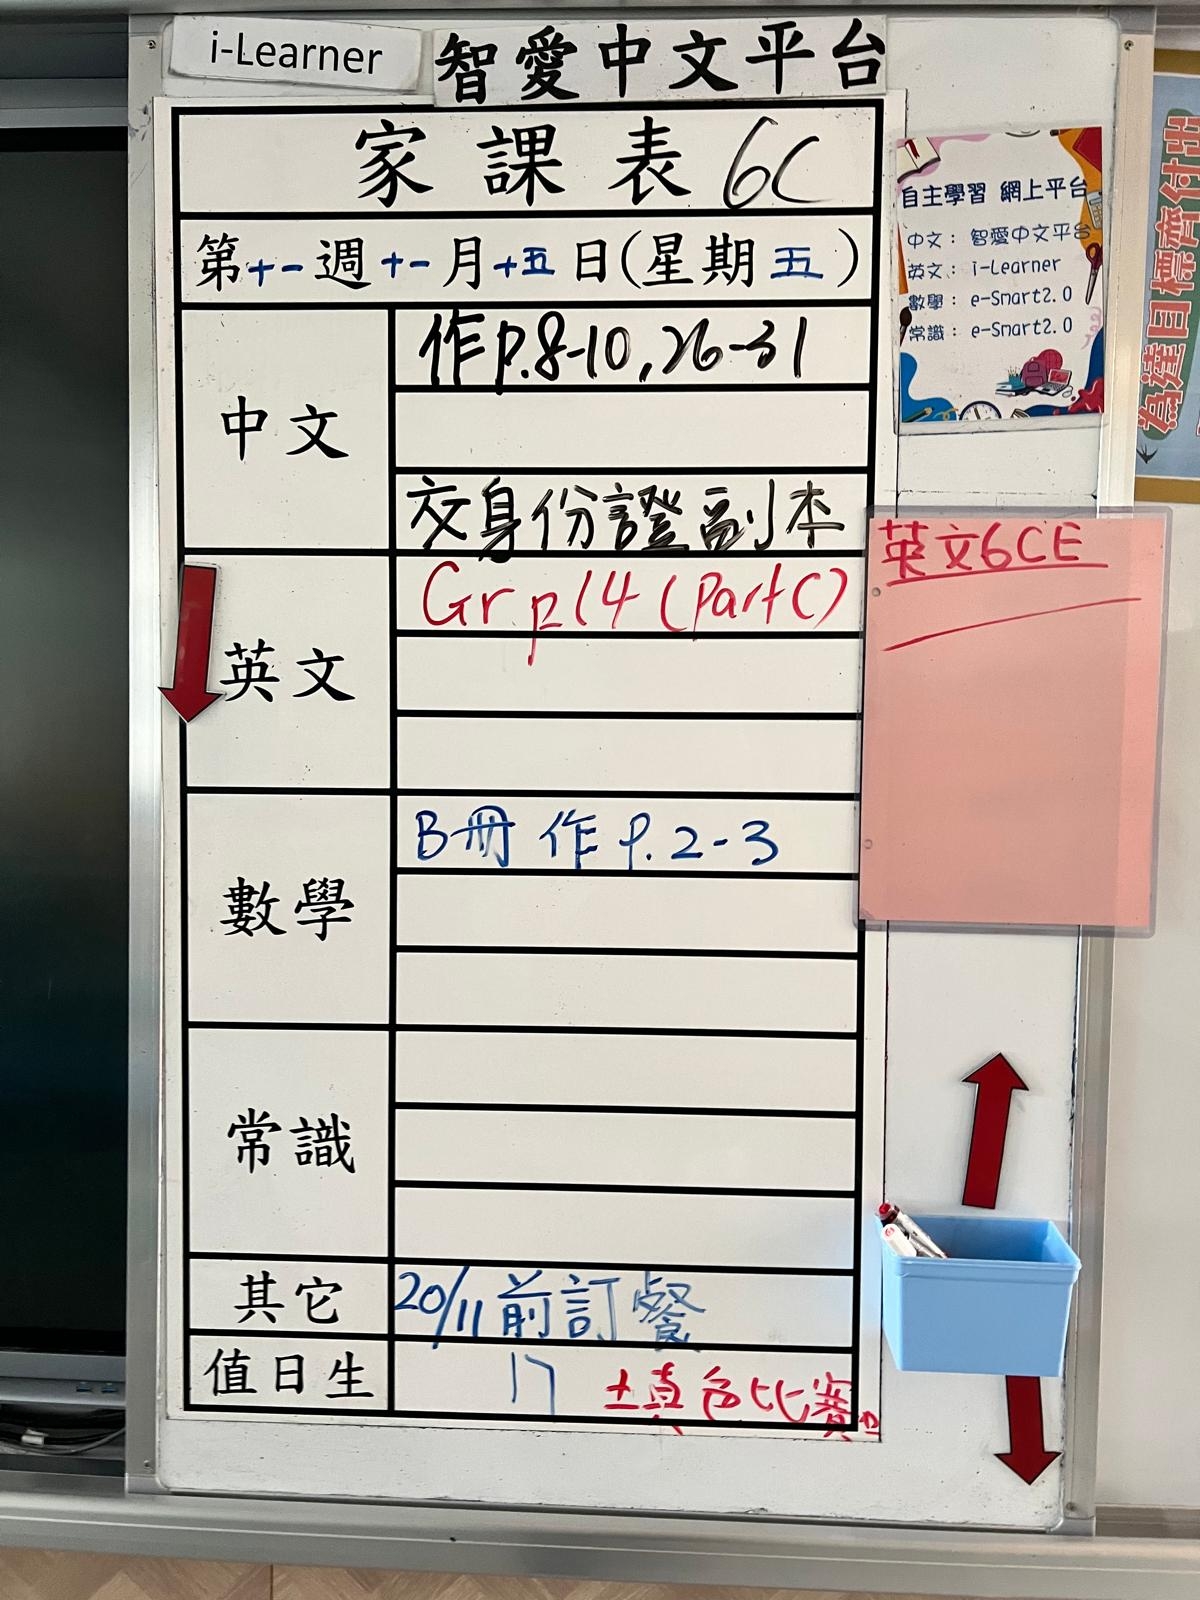 i-Learner
智愛中文平台
家課表 6C
第十一週十一月十五日(星期五)
中文
作p.8-10,26-31
交身份證副本
英文
Gr p14 (Part C)
數學
B冊 作 p.2-3
常識
其它
20/11前訂餐
值日生
17
填色比賽
自主學習 網上平台
中文：智愛中文平台
英文：i-Learner
數學：e-Smart2.0
常識：e-Smart2.0
英文6CE
為達目標齊付出